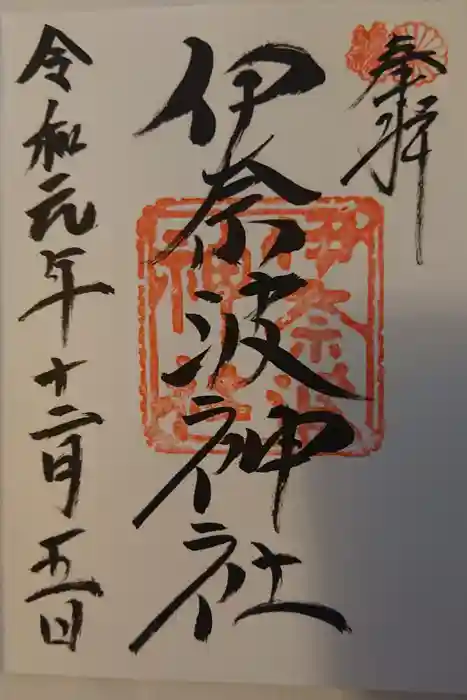 奉拝
伊奈波神社
伊奈波
神社
令和元年十二月五日